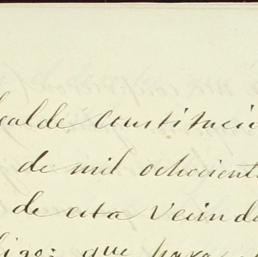 calde constitucio
de mil ochocient
de esta Vecinda
ligo: que para